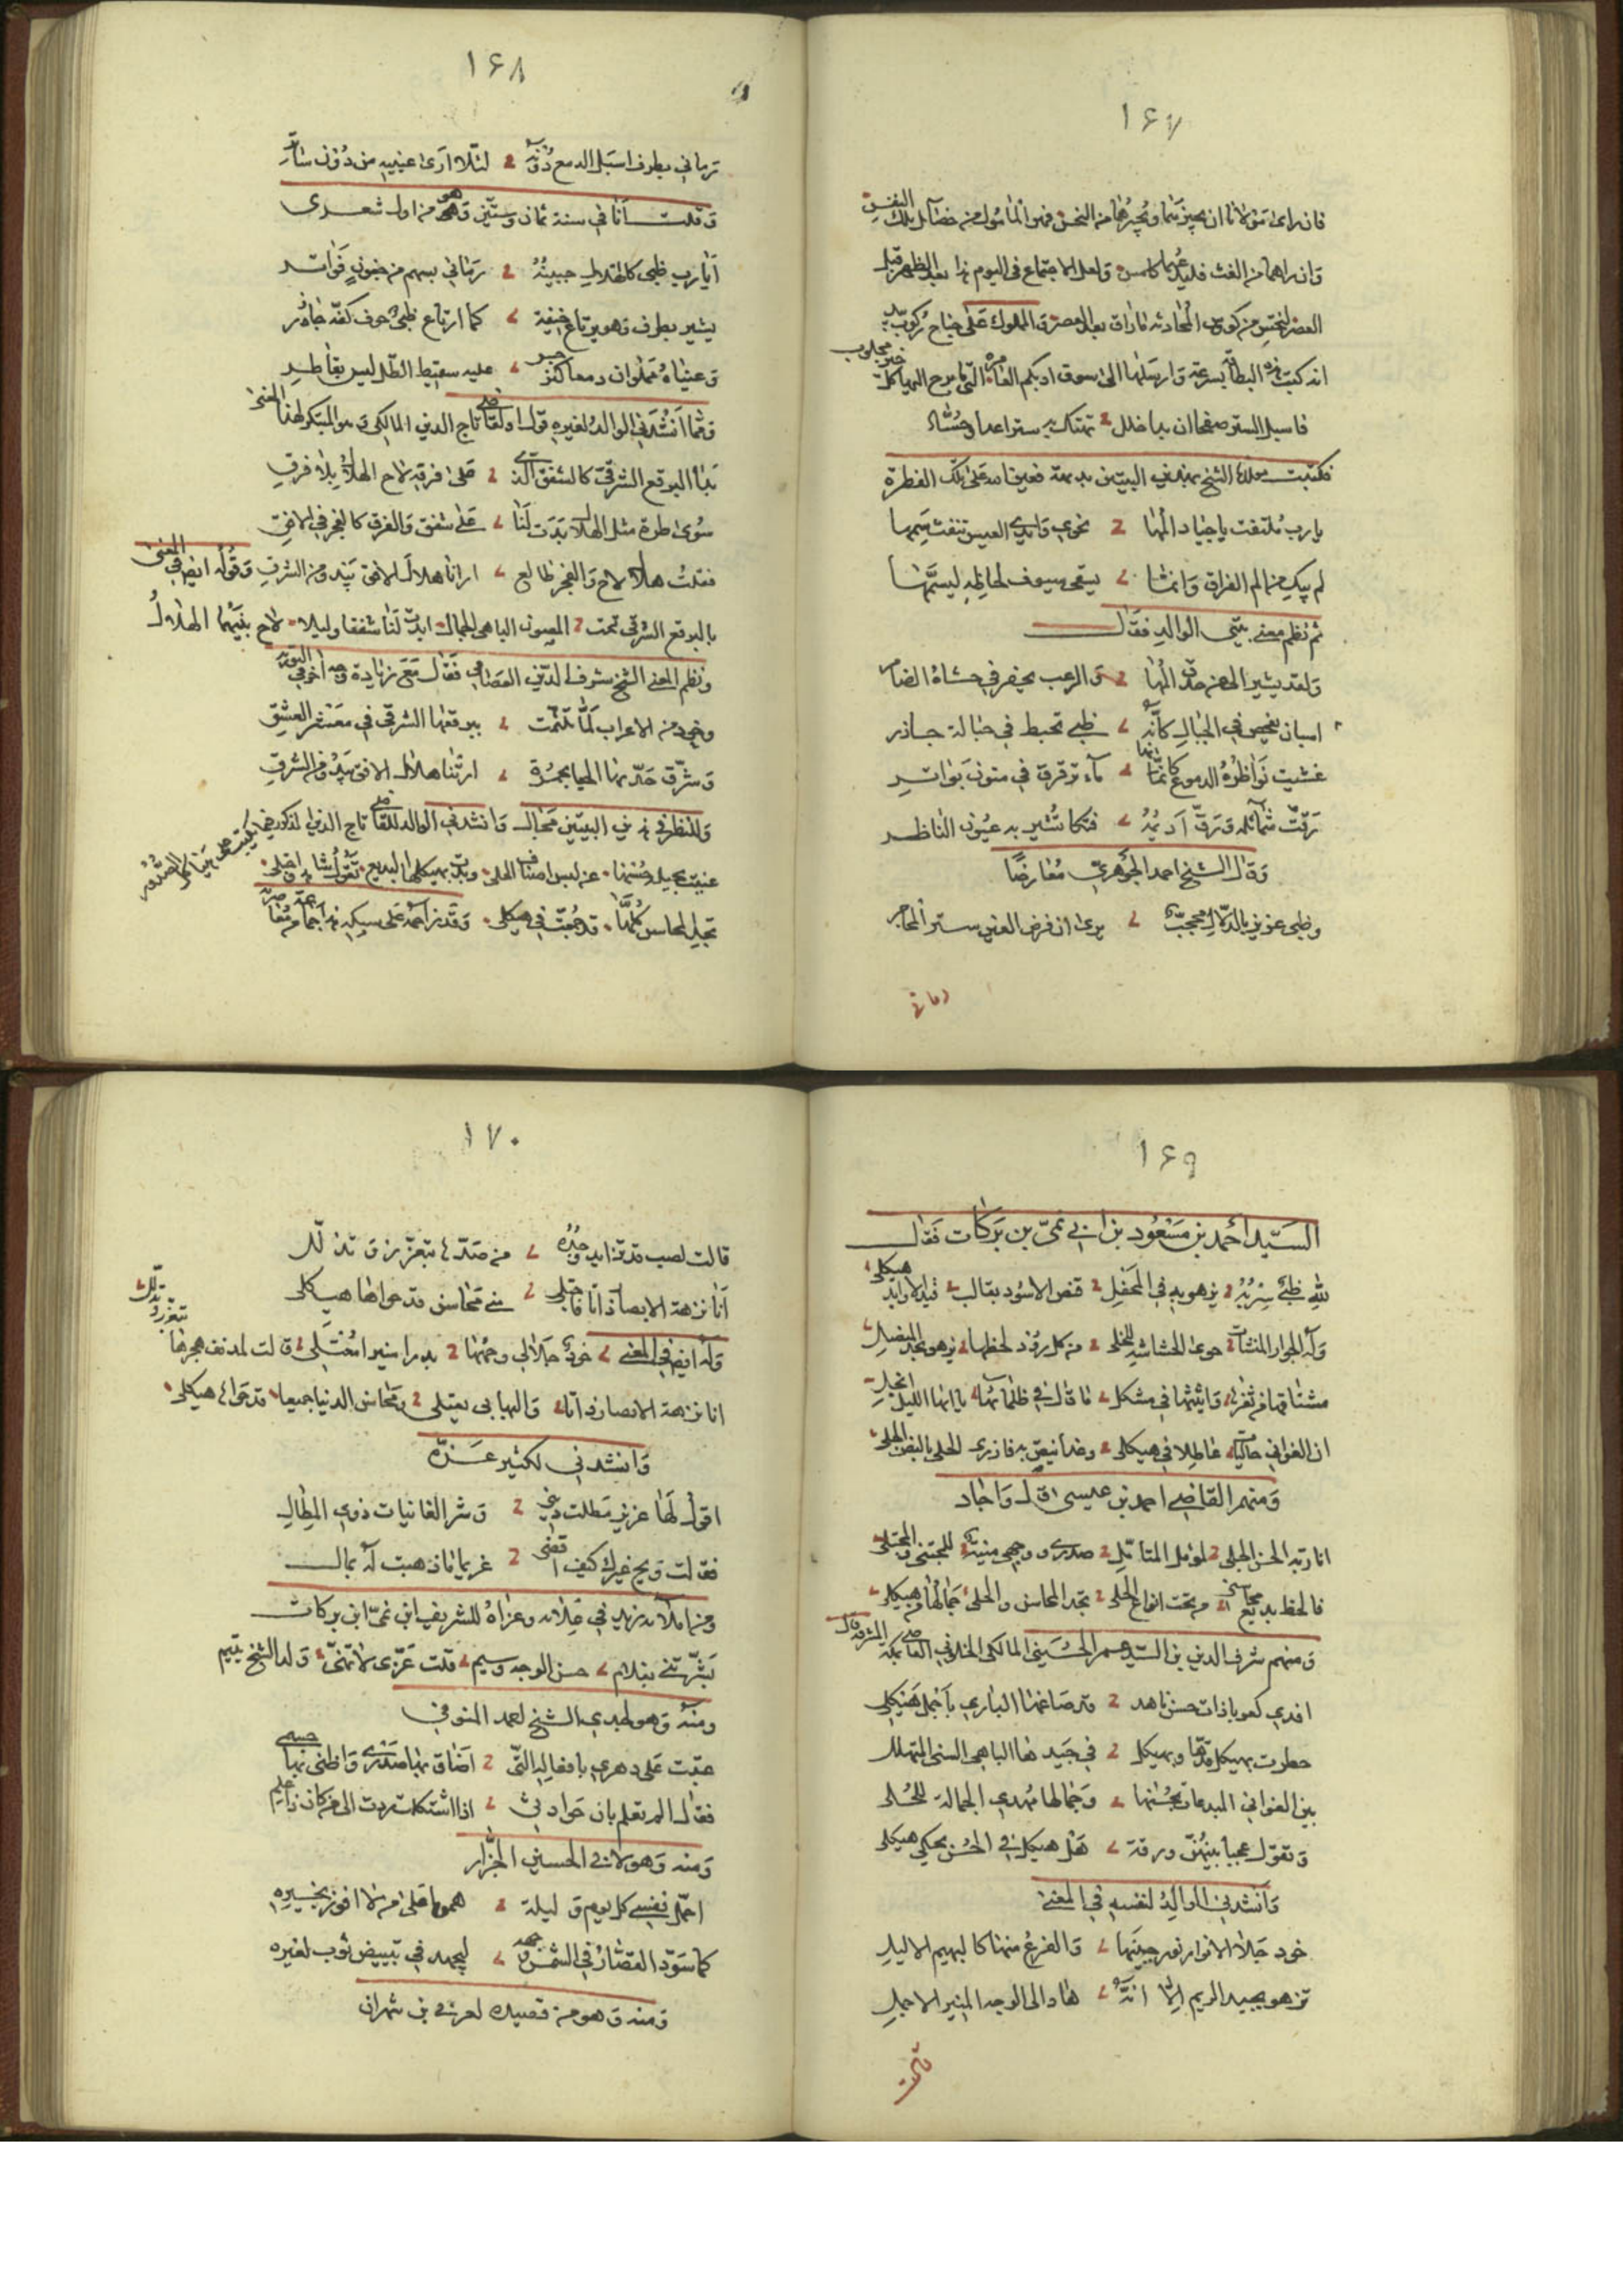 ١٦٧
فان رأى مولانا ان يجيزهما ويجيرهما من النحس فهو المأمول من فضائل تلك النفس
وان راهما من الغث فليدعهما كامس ولعل الاجتماع في اليوم ذا بعد الظهر قبل
العصر لنحتس من كوس المحادثه ما راق بعد العصر والمملوك على جناح ركوب بيد
انه كتبت هذه البطاقة بسرعة وارسلها الى سوق ادبكم العامرة التي ما برح اليها كل خير مجلوب
فاسبل الستر صفحا ان بدا خلل تهتك به ستر اعداء وحساد
فكتبت مولانا الشيخ بهذين البيتين بديهة معينا له على تلك الفطرة
يا رب ملتفت باجياد المها نحوي وايدي العيس تنفث سمها
لم يبك من الم الفراق وانما يسقي سيوف لحاظه ليسمها
ثم نظم معنى بيتي الوالد فقال
ولقد يشير الي عن حدق المها والرعب يخفر في حشاه الضامر
اسيان يفحص في الحبال كأنه ظبي تخبط في حبالة جاذر
غشيت نواظره الدموع كانما ماء ترقرق في متون بواتر
رقت شمائله ورق اديمه فتكا تشير به عيون الناظر
وقال الشيخ احمد الجوهري معارضا
وظبي عزيز بالدلال محجب يرى ان فرض العين ستر المحاجر
رماني
١٦٨
رماني بطرف اسبل الدمع دونه لئلا ارى عينيه من دون ساتر
وقلت انا في سنة ثمان وستين وهو من اول شعري
ايا رب ظبي كالهلال جبينه رماني بسهم من جفون فواتر
يشير بطرف وهو يرتاع خيفة كما ارتاع ظبي خوف كفة جاذر
وعيناه مملوان دمعا كنرجس عليه سقيط الطل ليس بقاطر
ومما انشدني الوالد لغيره قول القاضي تاج الدين المالكي وهو المبتكر لهذا المعنى
بدا البرقع الشرقي كالشفق الذي على فرقه لاح الهلال بلا فرق
سوى طرة مثل الهلال بدت لنا على شفق والفرق كالفجر في الافق
فقلت هلال لاح والفجر طالع ارانا هلال الافق يبدو من الشرق وقوله ايضا في المعنى
بالبرقع الشرقي تحت المصون الباهي الجمال ابدت لنا شفقا وليلا لاح بينهما الهلال
ونظم المعنى الشيخ شرف الدين العصامي فقال مع زيادة وجه اخر في التورية
وخود من الاعراب لما تلثمت ببرقعها الشرقي في معشر العشق
وشرق خد منها الحيا بحمرة ارتنا هلال الافق يبدو من الشرق
وللنظر في ذين البيتين مجال وانشدني الوالد للقاضي تاج الدين المذكور فيما يكتب على هيا كل الصدور
غنيت بجيل حسنها عن لبس اصناف الحلي وبدت بهيكلها البديع تقول شاهد واجتلي
تجد المحاسن كلها قد جمعت في هيكلي وقد زاحمه على سبكه هذا جماعة من معاصريه
١٦٩
السيد احمد بن مسعود بن ابي نمي بن بركات فقال
لله ظبي سربه يزهو به في المحفل قنص الاسود بقالب قيد الاوابد هيكلي
وله الجوار المنشآت حوى الحشاشة للخلي من كل رود لحظها يزهو بحد المنصل
مشتاقها من ثغرها واثيثها في مشكل ما قال في ظلمائها يا ايها الليل انجلي
ان الغواني حاليا عاطلا في هيكلي وغدا نيعق به فازرى الحلي بالبض الحلي
ومنهم القاضي احمد بن عيسى قال واجاد
انا ربة الحسن الجلي لمؤمل المتامل صدري ووجهي منية للمجتني والمجتلي
فالحظ بديع محاسني من تحت انواع الحلي تجد المحاسن والحلي جمالها من هيكلي
ومنهم شرف الدين بن السيد عمر الحسيني المالكي الخلوتي القاضي بمكة المشرفة قال
افدي كعوبا ذات حسن ناهد قد صاغها الباري باجمل هيكل
خطرت بهيكل قدها وبهيكل في جيدها الباهي السني المتهلل
بين الغواني المبدعات بحسنها وجمالها مهدي الجمالة للحلي
وتقول عجبا بينهن ورقة هل هيكل في الحسن يحكي هيكلي
وانشدني الوالد لنفسه في المعنى
خود جلا الانوار نور جبينها والفرع منها كالبهيم الاليل
تزهو بجيد الريم الا انه هاد الى الوجه المنير الاجمل
قالت
١٧٠
قالت لصب قد تزايد وجده من صدها بتعزز وتذلل
انا نزهة الابصار ذاتا فاجتلي مني محاسن قد حواها هيكلي
وله ايضا في المعنى خود جلا لي وجهها بدرا منيرا مختلي قالت لمدنف هجرها بتعزز وتذلل
انا نزهة الابصار ذاتا والبها بي يعتلي ومحاسن الدنيا جميعا قد حواها هيكلي
وانشدني لكثير عزة
اقول لها عزيز مطلت ديني وشر الغانيات ذوي المطال
فقالت ويح غيرك كيف اقضي غريما ما ذهبت له بمال
ومن املائه زيد في جلاله وعزاه للشريف ابن نمي ابن بركات
بشرتني بغلام حسن الوجه وسيم قلت عزي لا تهني ولد الشيخ يتيم
ومنه وهو لجدي الشيخ احمد المنوفي
عتبت على دهري بافعاله التي اضاق بها صدري واضنى بها جسمي
فقال الم تعلم بان حوادثي اذا اشكلت ردت الى من كان ذا علم
ومنه وهو لابي الحسين الجزار
احمل نفسي كل يوم وليلة هموما على من لا افوز بخيره
كما سود القصار في الشمس وجهه ليجهد في تبييض ثوب لغيره
ومنه وهو من قصيدة لعز بن شهران